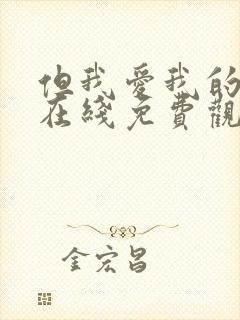 但我爱我的
在綫免費觀
金宏昌